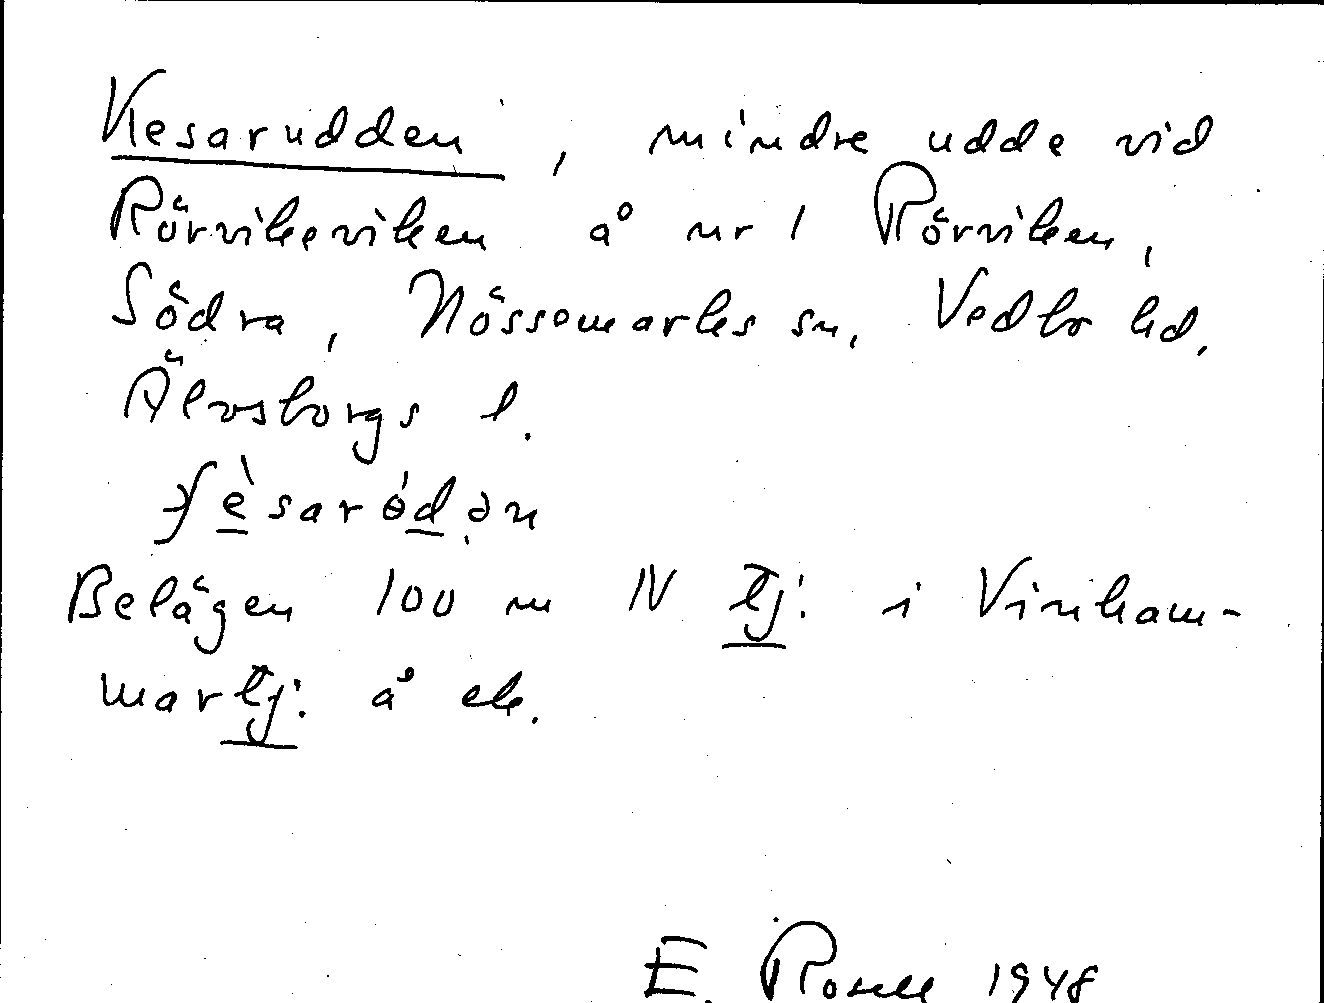 Kesarudden, mindre udde vid
Rörvikeviken å nr 1 Rörviken,
Södra, Nössemarks sn, Vedbo hd.
Älvsborgs l.
Belägen 100 m N tj: i Vinkam-
martj: å ek.
E. Rosell 1948